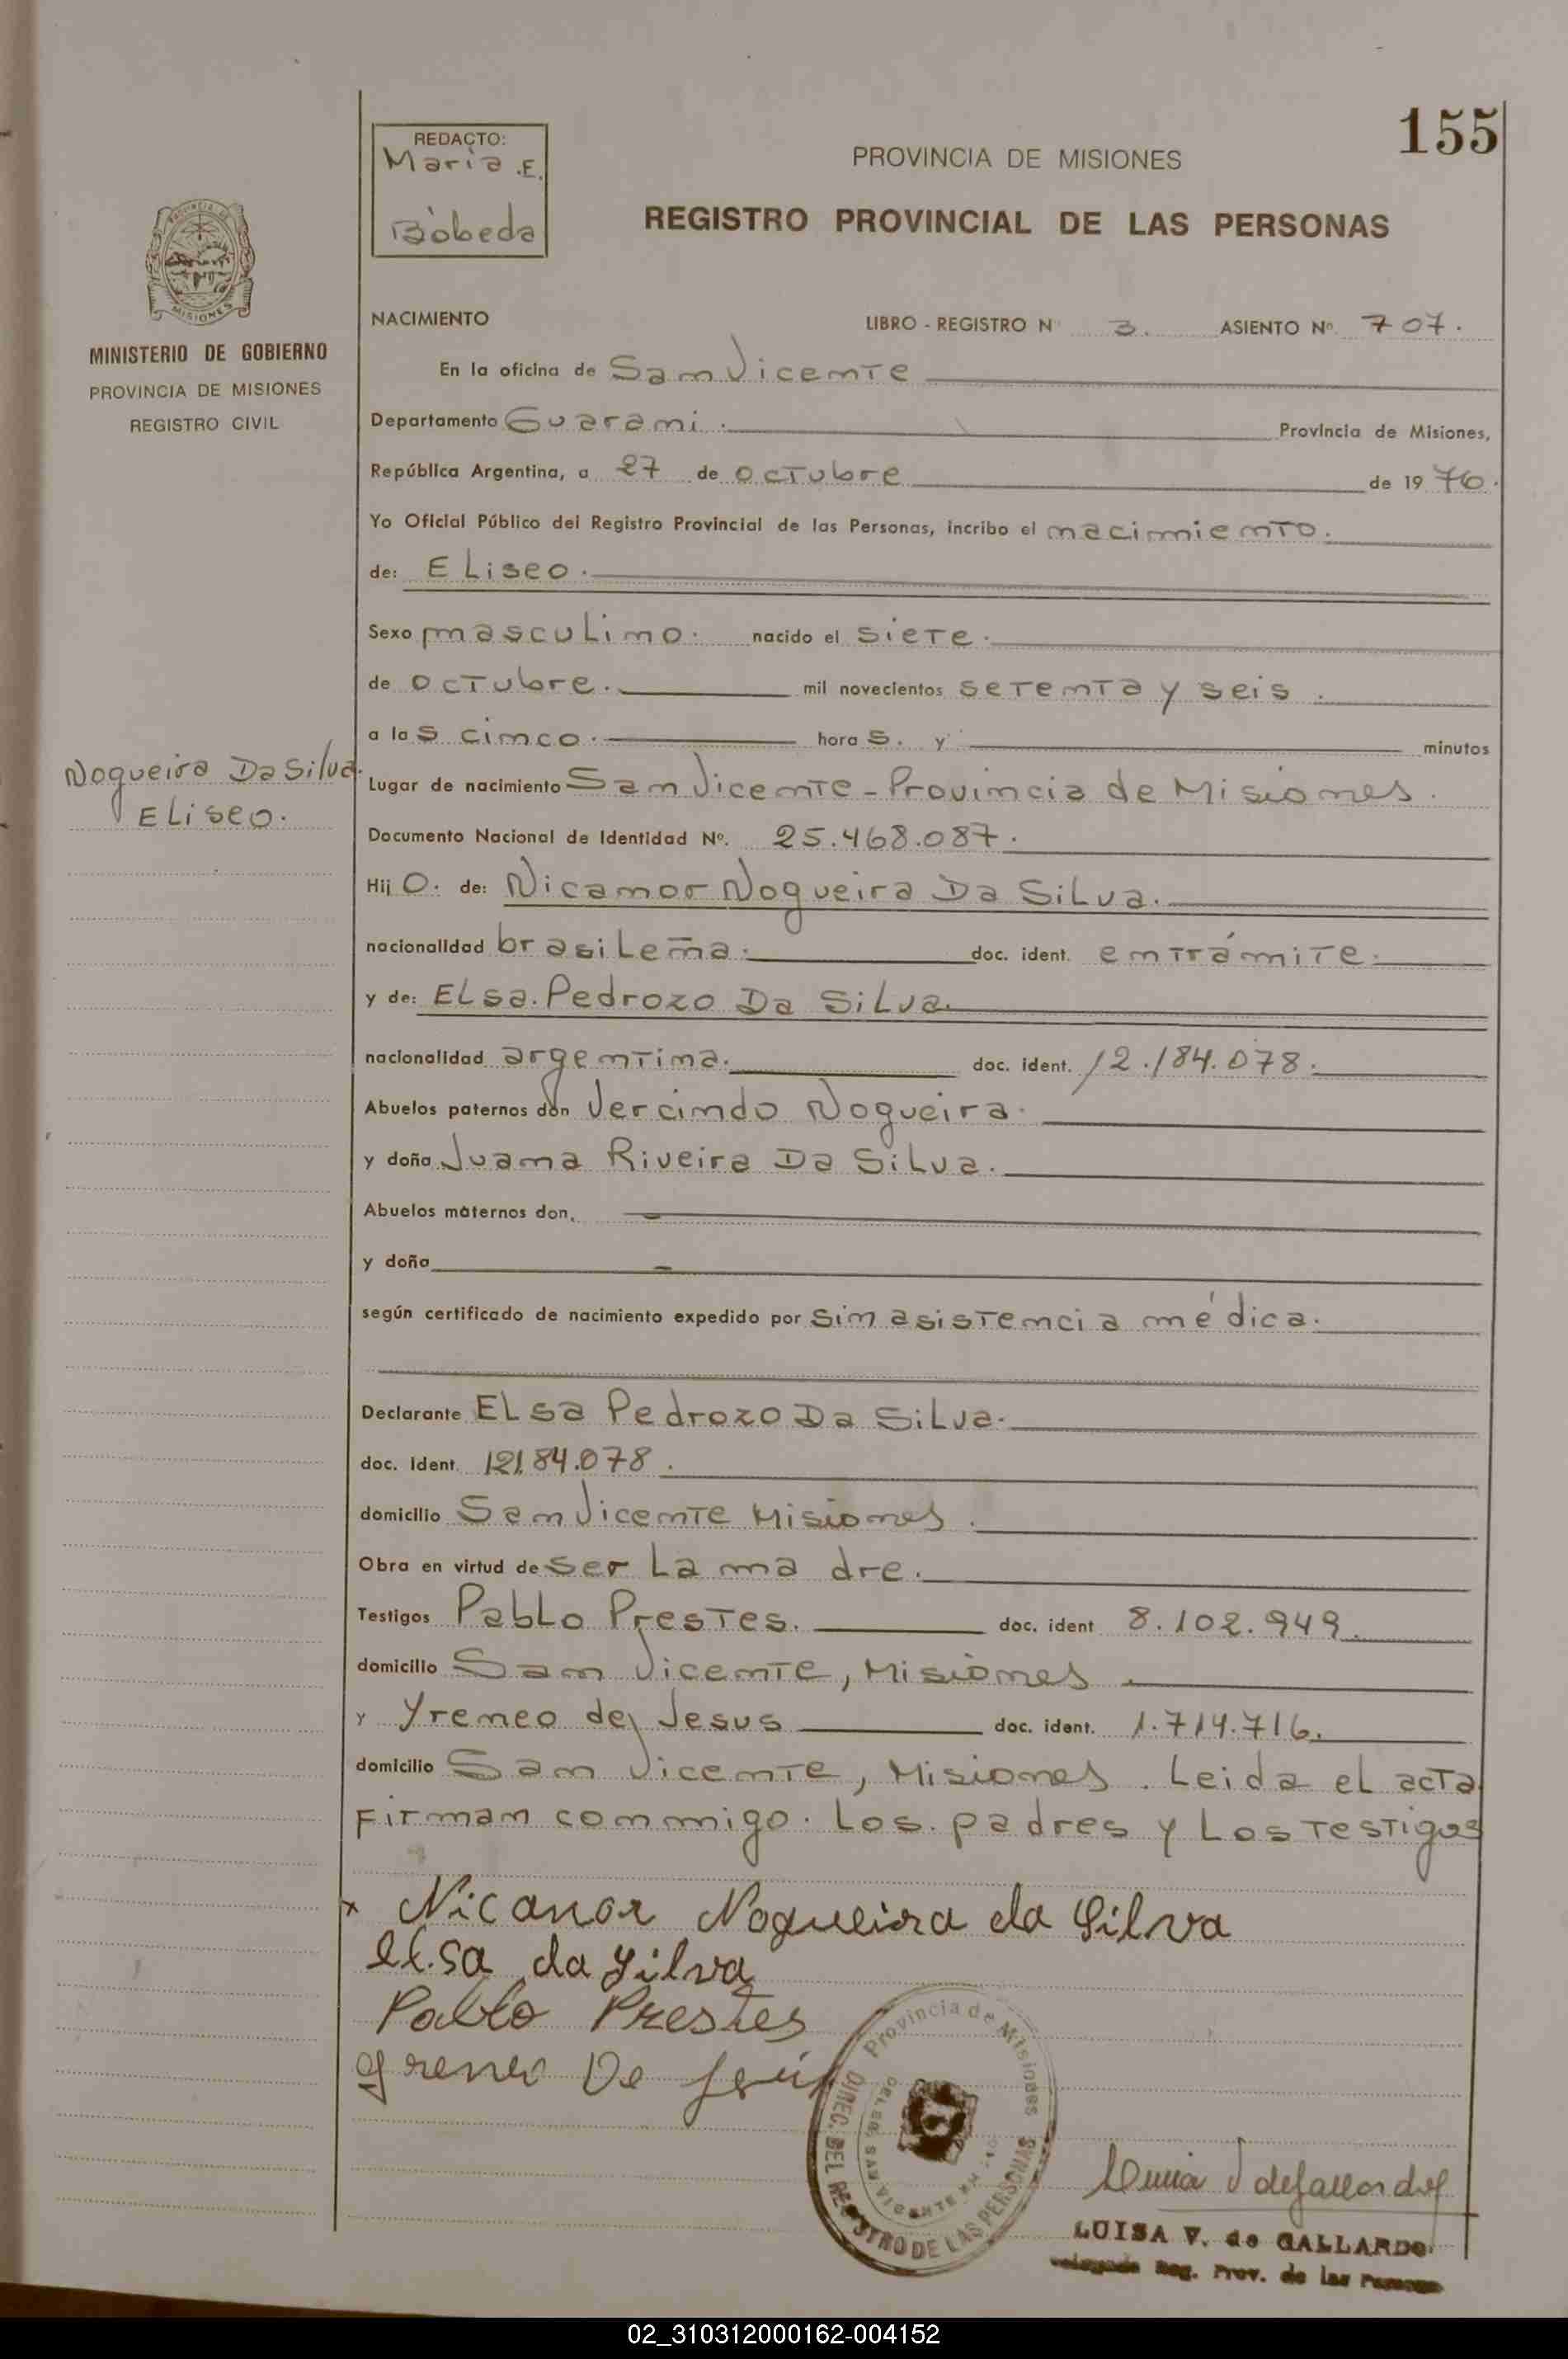 155
REDACTO:
Maria .E.
Bòbeda
PROVINCIA DE MISIONES
REGISTRO PROVINCIAL DE LAS PERSONAS
MISIONES
MINISTERIO DE GOBIERNO
PROVINCIA DE MISIONES
REGISTRO CIVIL
NACIMIENTO LIBRO - REGISTRO N 3. ASIENTO Nº 707.
En la oficina de San Vicente
Departamento Guarani. Provincia de Misiones,
República Argentina, a 27 de octubre de 1976.
Yo Oficial Público del Registro Provincial de las Personas, incribo el nacimiento.
de: Eliseo.
Sexo masculino. nacido el siete.
de octubre. mil novecientos setenta y seis.
a las cinco. horas. y minutos
Nogueira Da Silva.
Eliseo.
Lugar de nacimiento San Vicente - Provincia de Misiones.
Documento Nacional de Identidad Nº. 25.468.087.
Hijo. de: Nicanor Nogueira Da Silva.
nacionalidad brasileña. doc. ident. en trámite.
y de: Elsa. Pedrozo Da Silva.
nacionalidad argentina. doc. ident. 12.184.078.
Abuelos paternos don Vercindo Nogueira.
y doña Juana Riveira Da Silva.
Abuelos maternos don, -
y doña -
según certificado de nacimiento expedido por sin asistencia médica.
Declarante Elsa Pedrozo Da Silva.
doc. ident. 12184.078.
domicilio San Vicente Misiones.
Obra en virtud de ser la madre.
Testigos Pablo Prestes. doc. ident 8.102.949.
domicilio San Vicente, Misiones.
y Yreneo de Jesus doc. ident. 1.714.716.
domicilio San Vicente, Misiones. Leida el acta
firman conmigo. los. padres y los testigos
x Nicanor Nogueira da Silva
elsa da Silva
Pablo Prestes
Yreneo De Jesús
Provincia de Misiones
DIREC. DEL REGISTRO DE LAS PERSONAS
LUISA V. de GALLARDO
Delegada Reg. Prov. de las Personas
02_310312000162-004152